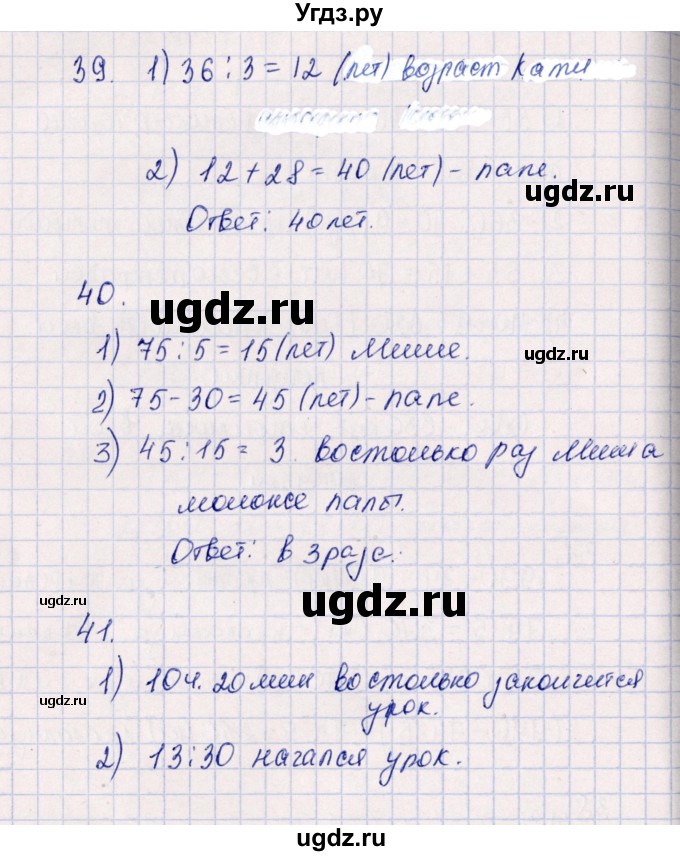 Угдз.ру
39. 1) 36 : 3 = 12 (лет) возраст Кати
2) 12 + 28 = 40 (лет) - папе.
ugdz.ru
Ответ: 40 лет.
40.
ugdz.ru
1) 75 : 5 = 15 (лет) Мише.
ugdz.ru
2) 75 - 30 = 45 (лет) - папе.
3) 45 : 15 = 3. востолько раз Миша
моложе папы.
Ответ: в 3 раза.
ugdz.ru
ugdz.ru
41.
1) 10ч. 20мин во столько закончится
урок.
ugdz.ru
2) 13:30 начался урок.
ugdz.ru